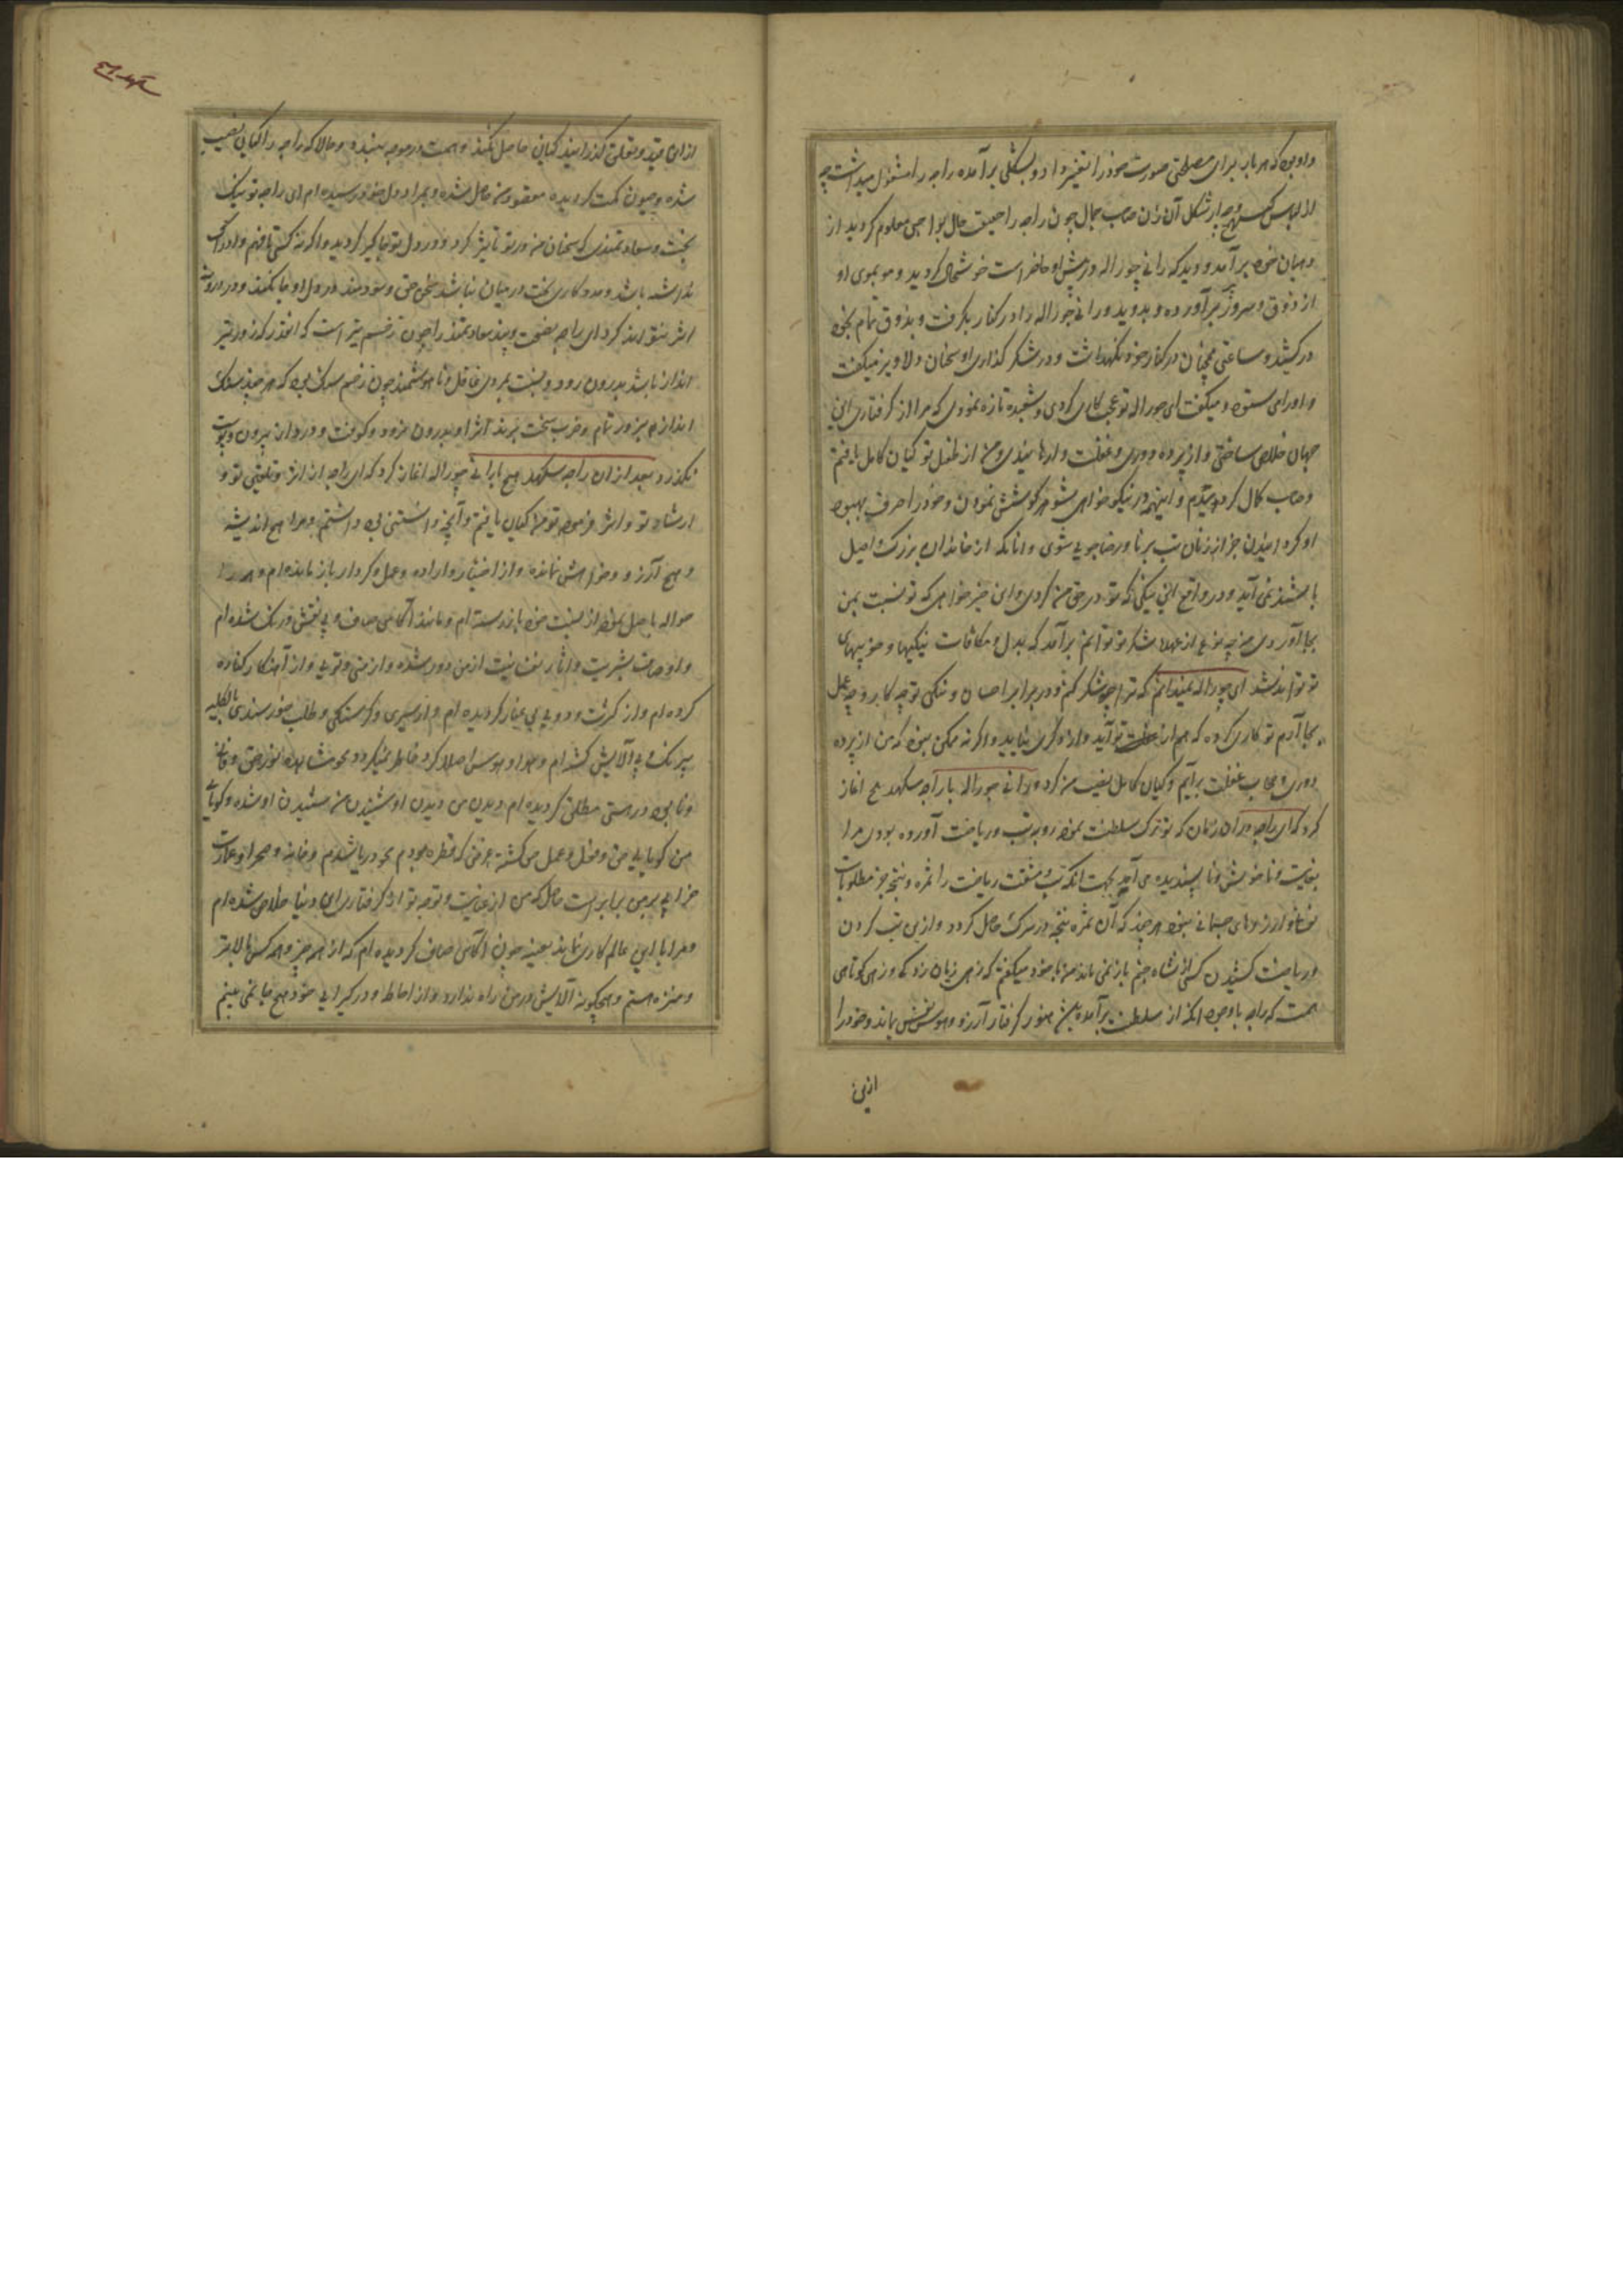 و او بود که هر بار برای مصلحتی صورت خود را تغییر داده و بشکلی برآمده راجه را مشغول میداشت چه
از لباس کنبهه و چه از شکل آن زن صاحب جمال چون راجه را حقیقت حال بواجبی معلوم گردید از
دهیان خود برآمد و دید که رانی چوراله در پیش او حاضر است خوشحال گردید و مو بموی او
از ذوق و سرور برآورده و بدوید و رانی چوراله را در کنار بگرفت و بذوق تمام بخود
در کشید و ساعتی همچنان در کنار خود نگهداشت و در شکر گذاری او سخنان دلاویز میگفت
و او را می ستود و میگفت ای چوراله تو عجب کاری کردی و شعبده تازه نمودی که مرا از گرفتاری این
جهان خلاص ساختی و از پرده دوری و غفلت وارهانیدی و من از طفیل تو گیان کامل یافتم
و صاحب کمال گردیدم و اینهمه در نیکو خواهی شوهر کوشش نمودن و خود را صرف بهبود
او کردانیدن جز از زنان پتی برتا و رضاجویی شوی و آنانکه از خاندان بزرگ و اصیل
باشند نمی آید و در واقع این نیکی که تو در حق من کردی و این خیرخواهی که تو نسبت بمن
بجا آوردی من چه نوع از عهده شکر تو توانم برآمد که بدل و مکافات نیکیها و خوبیهای
تو تواند شد ای چوراله نمیدانم که ترا چه شکر کنم و در برابر احسان و نیکی تو چه کار و چه عمل
بجا آرم تو کاری کرده که هم از دست تو آید و از دیگری نیاید و اگر نه ممکن نبود که من از پرده
دوری و حجاب غفلت برآیم و گیان کامل نصیب من گردد و رانی چوراله با راجه سکهدهج آغاز
کرد که ای راجه در آن زمان که تو ترک سلطنت نموده رو به تپ و ریاضت آورده بودی مرا
بغایت ناخوش و ناپسندیده می آمد بجهت آنکه تپ و مشقت ریاضت را ثمره و نتیجه جز مطلوبات
نفسانی و آرزوهای جسمانی نبود هر چند که آن ثمره و نتیجه در سرگ حاصل گردد و ازین تپ کردن
و ریاضت کشیدن کسی از نشاه جنم باز نمی ماند من با خود میگفتم که زهی زیان زدگی و زهی کوتاهی
همت که راجه با وجود آنکه از سلطنت برآمده است هنوز گرفتار آرزو و هوس نفس ماند و خود را
ازین
از این قید و تعلق گذرانید گیان حاصل نکند و همت در موچه نبندد و حالا که راجه را گیان نصیب
شده و جیون مکت گردیده مقصود من حاصل شده و بمراد دل خود رسیده ام ای راجه تو نیک
بخت و سعادتمندی که سخنان من در تو تأثیر کرد و در دل تو جاگیر گردید و اگر نه کسی تا فهم و ادراک
نداشته باشد و مددکاری بخت در میان نباشد سخن حق و سودمند در دل او جا نکند و در درون
اثر نتواند کرد ای راجه نصیحت و پند سعادتمند را چون زخم تیر است که آنقدر که زور تیر
انداز باشد بدرون رود و نسبت بمردم غافل و ناهوشمند چون زخم سنگ بود که هر چند سنگ
انداز بزور تمام و ضرب سخت بزند اثر او بدرون نرود و کوفت و درد آن بیرون و پوست
نگذرد بعد از آن راجه سکهدهج با رانی چوراله آغاز کرد که ای رانی از اثر و تلقین تو و
ارشاد تو و اثر فرموده تو من گیان یافتم و آنچه دانستنی بود دانستم و مرا هیچ اندیشه
و هیچ آرزو و خواهش نمانده و از اختیار و اراده و عمل و کردار باز مانده ام و همه را
حواله باصل نموده از نسبت خود باز رسته ام و مانند آگاهی صاف و بی نقش و رنگ شده ام
و اوصاف بشریت و آثار نفسانیت از من دور شده و از منی و تویی و از آهنکار کناره
کرده ام و از کثرت و دویی بی غبار گردیده ام و از سیری و گرسنگی و طلب خورسندی بالکلیه
بیرنگ و بی آلایش گشته ام و هوا و هوس اصلا گرد خاطر نمیگردد و محو مشاهده نور حق و فانی
و نابود در هستی مطلق گردیده ام دیدن من دیدن او شنیدن من شنیدن او شده و گویائی
من گویایی حق و فعل و عمل من گشته هر وقتی که قطره بودم محو دریا شدم و خانه و صحرا و عمارت
خرابه بر من برابر است حاصل که من از عنایت و توجه تو از گرفتاری این دنیا خلاص شده ام
و مرا با این عالم کاری نمانده بعینه چون آگاهی صاف گردیده ام که از همه چیز و همه کس بالاتر
و منزه هستم و هیچگونه آلایش در من راه ندارد و از احاطه و در گیرایی خود هیچ جا نمی بینم